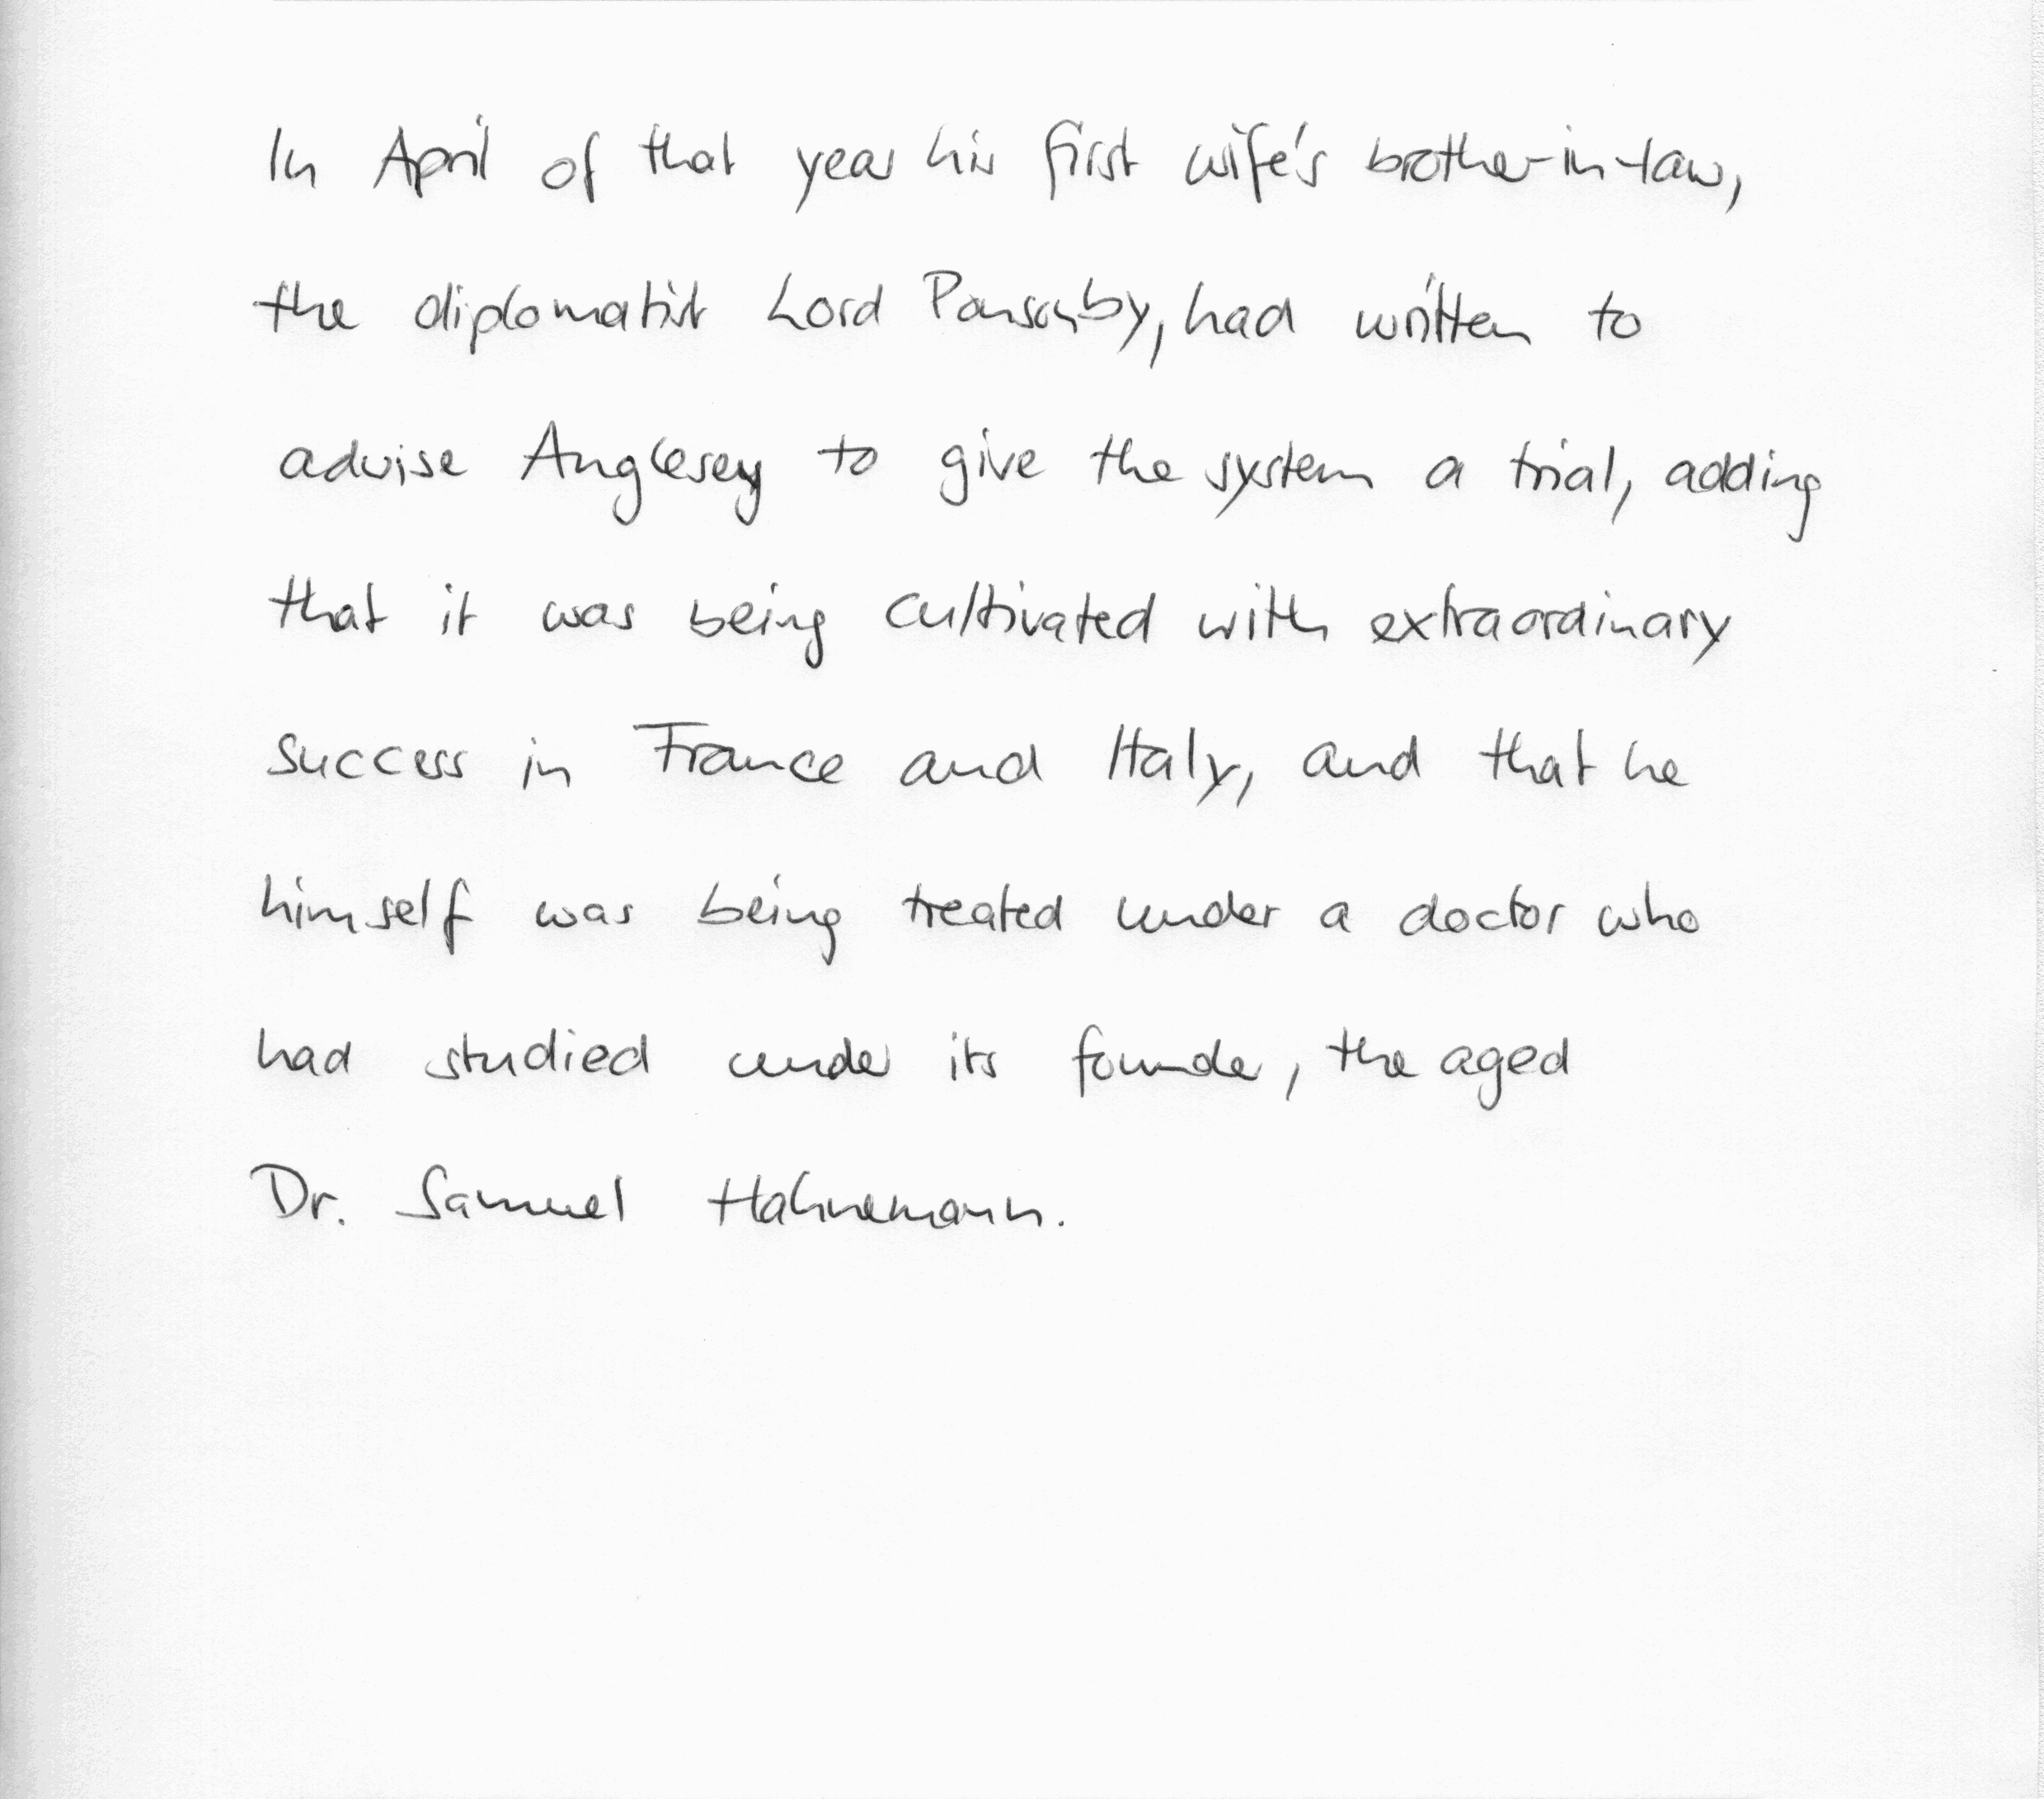 In April of that year his first wife's brother-in-law,
the diplomatist Lord Ponsonby, had written to
advise Anglesey to give the system a trial, adding
that it was being cultivated with extraordinary
success in France and Italy, and that he
himself was being treated under a doctor who
had studied under its founder, the aged
Dr. Samuel Hahnemann.